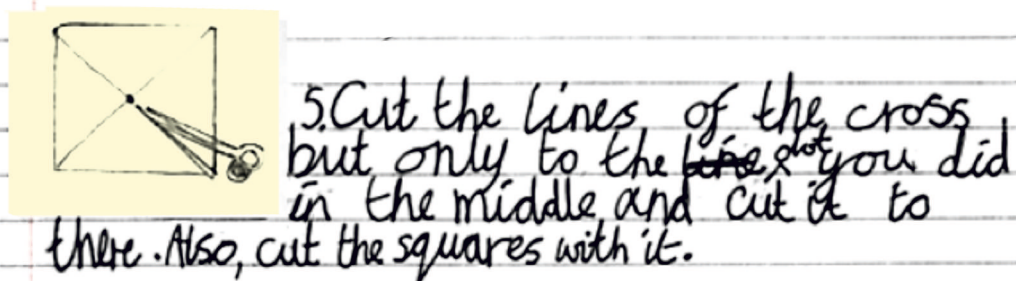 5.Cut the lines of the cross
but only to the dot you did
in the middle and cut it to
there. Also, cut the squares with it.